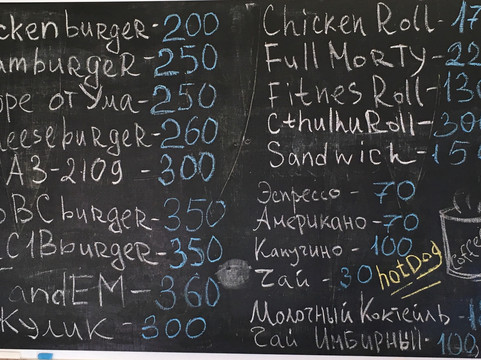 ckenburger-200
amburgeR-250
оре от Ума-250
eeseburger-260
АЗ-2109 - 300
ВС burger-350
C1Bburger-350
andEM-360
Жулик - 300
Chicken Roll-17
Full MoRTY-22
Fitnes Roll-130
CthulhuRoll-300
Sandwich-150
Эспрессо - 70
Американо-70
Капучино - 100
Чай - 30
hotDog
coffee
Молочный Коктейль-1
Чай Имбирный-100